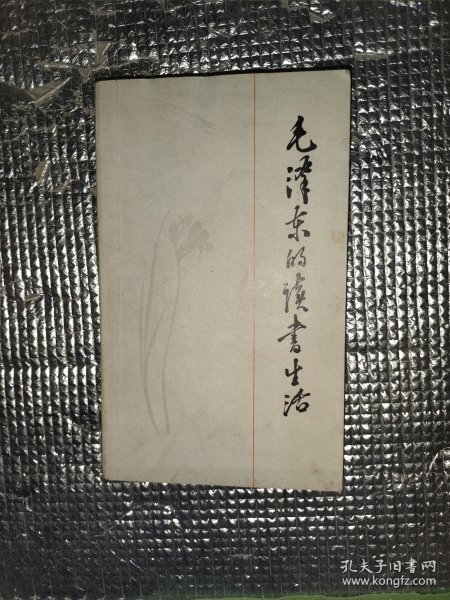 毛泽东的读书生活
孔夫子旧书网
www.kongfz.com